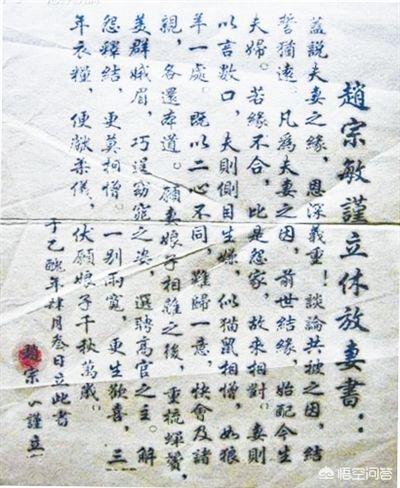 趙宗敏謹立休放妻書：
蓋説夫妻之緣，恩深義重！談論共被之因，結
誓猶遠。凡爲夫妻之因，前世結緣，始配今生
夫婦。若緣不合，比是怨家，故来相對。妻則
以言數口，夫則側目生嫌。似猫鼠相憎，如狼
羊一處。既以二心不同，難歸一意，快會及諸
親，各還本道。願妻娘子相離之後，重梳蟬鬢，
美群娥眉，巧逞窈窕之姿，選聘高官之主。解
怨釋結，更莫相憎。一别兩寬，更生歡喜，三
年衣糧，便献柔儀，伏願娘子千秋萬歲。
于乙醜年肆月叁日立此書
趙宗謹立
悟空问答